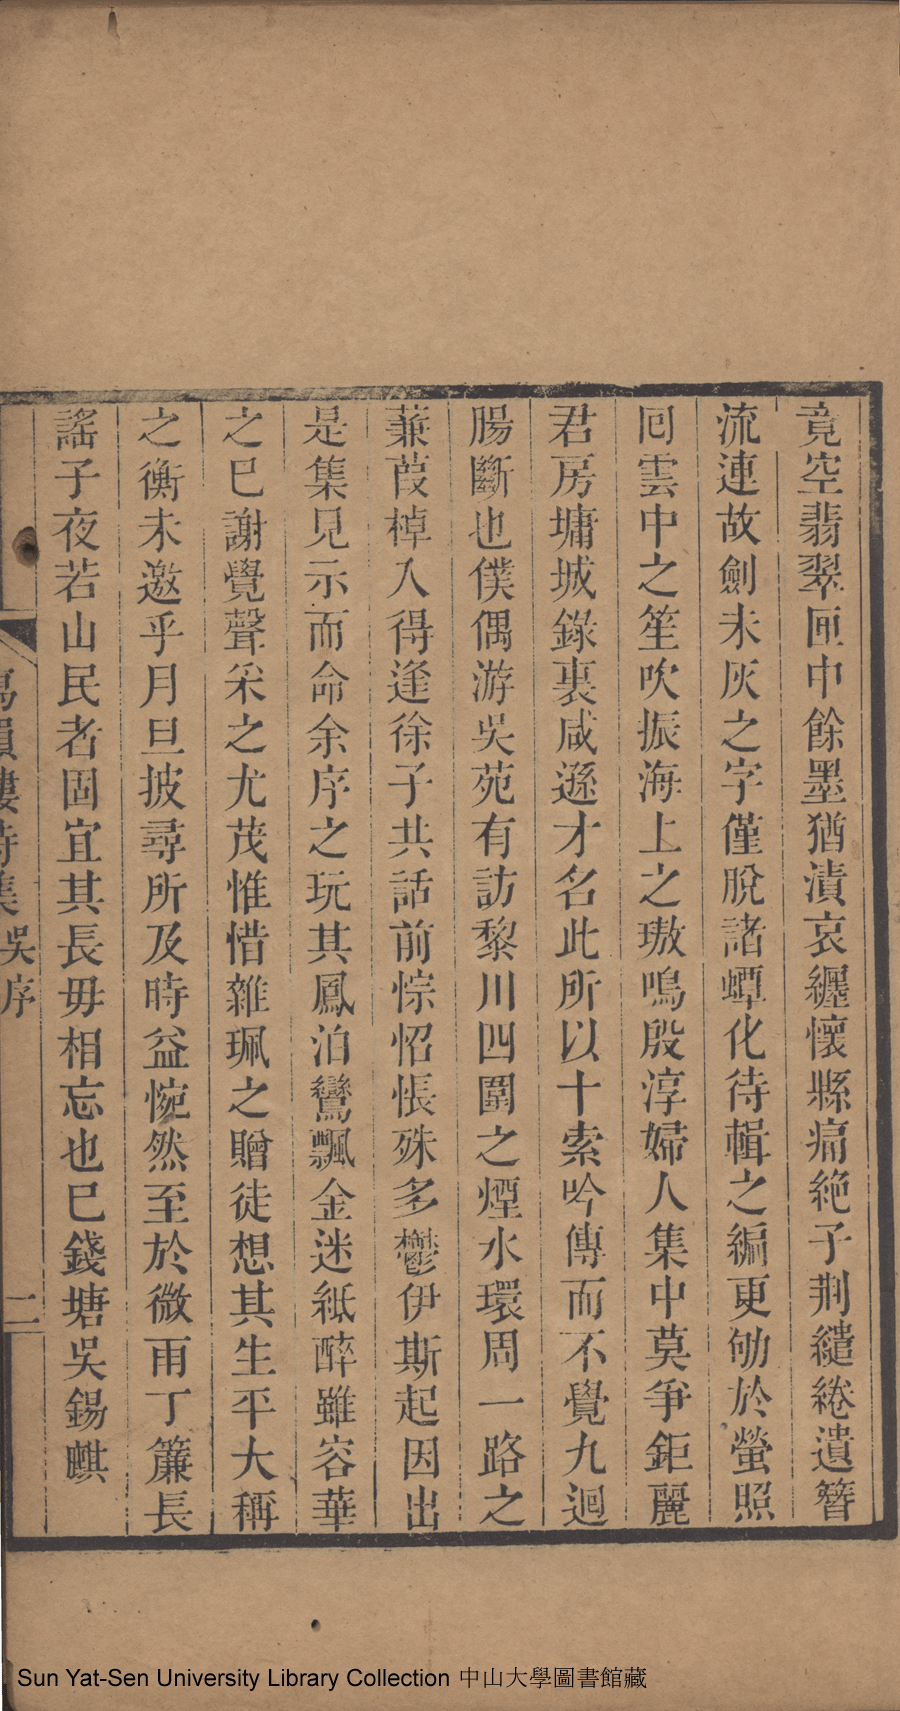 竟空翡翠匣中餘墨猶漬哀纏懷縣痛絶子荆繾綣遺簪
流連故劍未灰之字僅脫諸蟫化待輯之編更劬於螢照
囘雲中之笙吹振海上之璈鳴殷淳婦人集中莫爭鉅麗
君房墉城錄裏咸遜才名此所以十索吟傳而不覺九迴
腸斷也僕偶游吳苑有訪黎川四圍之煙水環周一路之
蒹葭棹入得逢徐子共話前悰怊悵殊多鬱伊斯起因出
是集見示而命余序之玩其鳳泊鸞飄金迷紙醉雖容華
之已謝覺聲采之尤茂惟惜雜珮之贈徒想其生平大稱
之衡未邀乎月旦披尋所及時益惋然至於微雨丁簾長
謠子夜若山民者固宜其長毋相忘也已錢塘吳錫麒
寫韻樓詩集 吳序 二
Sun Yat-Sen University Library Collection 中山大學圖書館藏